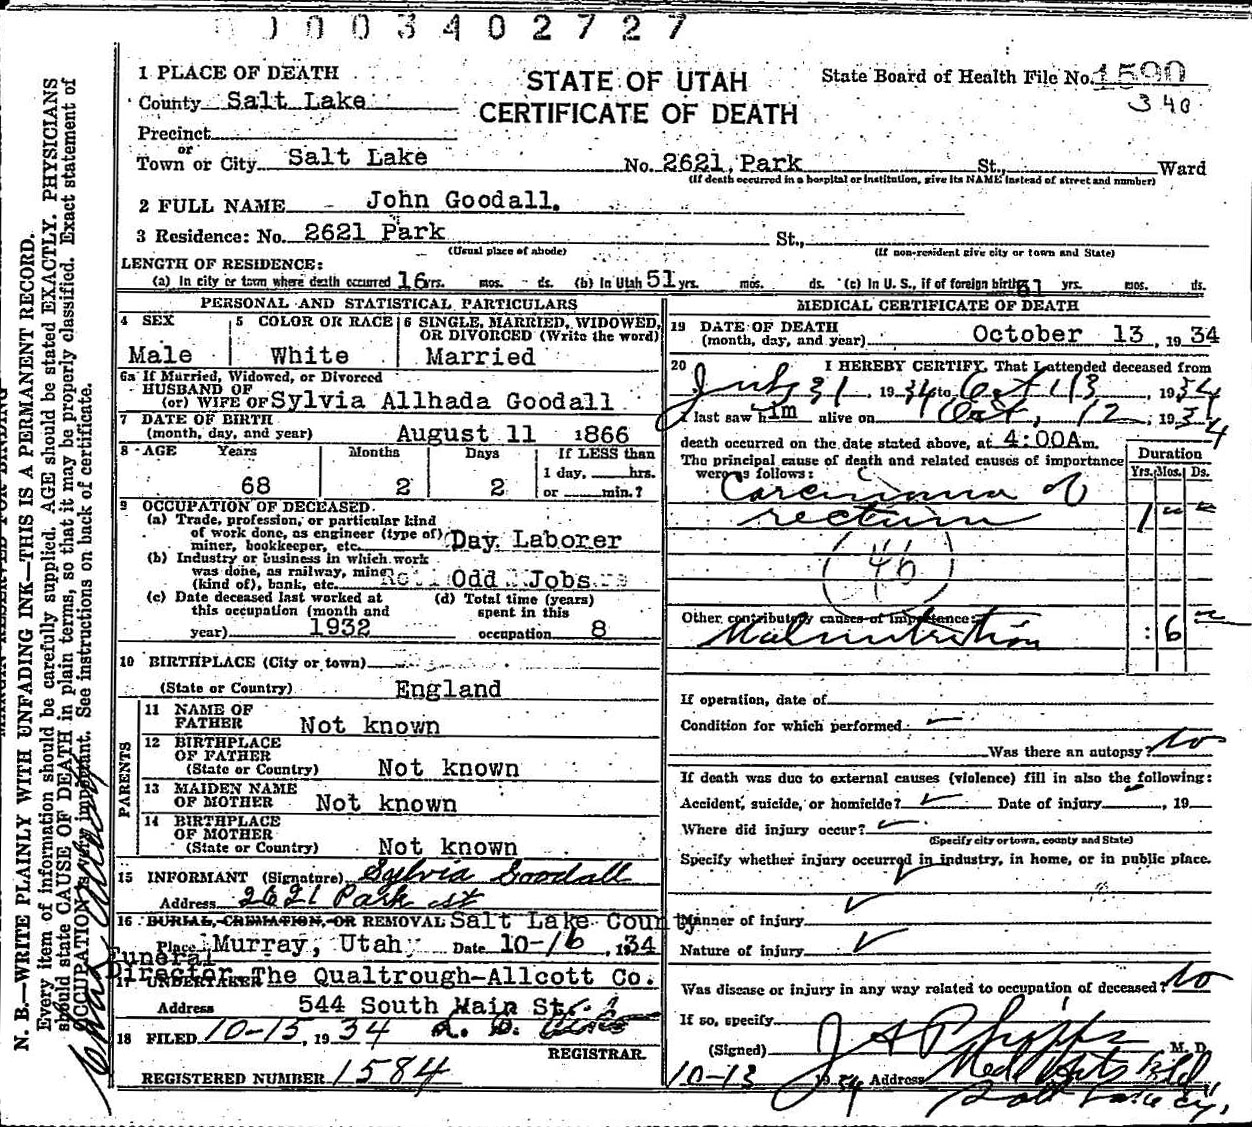 0003402727
1 PLACE OF DEATH
STATE OF UTAH
CERTIFICATE OF DEATH
State Board of Health File No. 1590
340
County Salt Lake
Precinct
or
Town or City Salt Lake No. 2621 Park St., Ward
(If death occurred in a hospital or institution, give its NAME instead of street and number)
2 FULL NAME John Goodall.
3 Residence: No. 2621 Park St.,
(Usual place of abode) (If non-resident give city or town and State)
LENGTH OF RESIDENCE:
(a) In city or town where death occurred 16 yrs. mos. ds. (b) In Utah 51 yrs. mos. ds. (c) In U. S., if of foreign birth 51 yrs. mos. ds.
PERSONAL AND STATISTICAL PARTICULARS
4 SEX
Male
5 COLOR OR RACE
White
6 SINGLE, MARRIED, WIDOWED,
OR DIVORCED (Write the word)
Married
6a If Married, Widowed, or Divorced
HUSBAND OF
(or) WIFE OF Sylvia Allhada Goodall
7 DATE OF BIRTH
(month, day, and year) August 11 1866
8 AGE Years Months Days If LESS than
1 day, hrs.
68 2 2 or min.?
9 OCCUPATION OF DECEASED
(a) Trade, profession, or particular kind
of work done, as engineer (type of)
miner, bookkeeper, etc. Day Laborer
(b) Industry or business in which work
was done, as railway, mine
(kind of), bank, etc. Odd Jobs
(c) Date deceased last worked at
this occupation (month and
year) 1932
(d) Total time (years)
spent in this
occupation 8
10 BIRTHPLACE (City or town)
(State or Country) England
PARENTS
11 NAME OF
FATHER Not known
12 BIRTHPLACE
OF FATHER
(State or Country) Not known
13 MAIDEN NAME
OF MOTHER Not known
14 BIRTHPLACE
OF MOTHER
(State or Country) Not known
15 INFORMANT (Signature) Sylvia Goodall
Address 2621 Park st
16 BURIAL, CREMATION, OR REMOVAL Salt Lake County
Place Murray, Utah Date 10-16, 1934
Funeral
Director
17 UNDERTAKER The Qualtrough-Allcott Co.
Address 544 South Main St.
18 FILED 10-15, 1934
REGISTRAR.
REGISTERED NUMBER 1584
MEDICAL CERTIFICATE OF DEATH
19 DATE OF DEATH
(month, day, and year) October 13, 1934
20 I HEREBY CERTIFY, That I attended deceased from
July 31, 1934 to Oct 13, 1934
I last saw him alive on Oct, 12, 1934
death occurred on the date stated above, at 4:00A m.
The principal cause of death and related causes of importance
were as follows:
Duration
Yrs. Mos. Ds.
Carcinoma of
rectum 1
46
Other contributory causes of importance:
Malnutrition 6
If operation, date of
Condition for which performed
Was there an autopsy? No
If death was due to external causes (violence) fill in also the following:
Accident, suicide, or homicide? Date of injury, 19
Where did injury occur?
(Specify city or town, county and State)
Specify whether injury occurred in industry, in home, or in public place.
Manner of injury
Nature of injury
Was disease or injury in any way related to occupation of deceased? No
If so, specify
(Signed) J A Phipps M. D.
10-13 1934 Address Med Arts Bld
Salt Lake Cy.
N. B.—WRITE PLAINLY WITH UNFADING INK—THIS IS A PERMANENT RECORD.
Every item of information should be carefully supplied. AGE should be stated EXACTLY. PHYSICIANS
should state CAUSE OF DEATH in plain terms, so that it may be properly classified. Exact statement of
OCCUPATION is very important. See instructions on back of certificate.